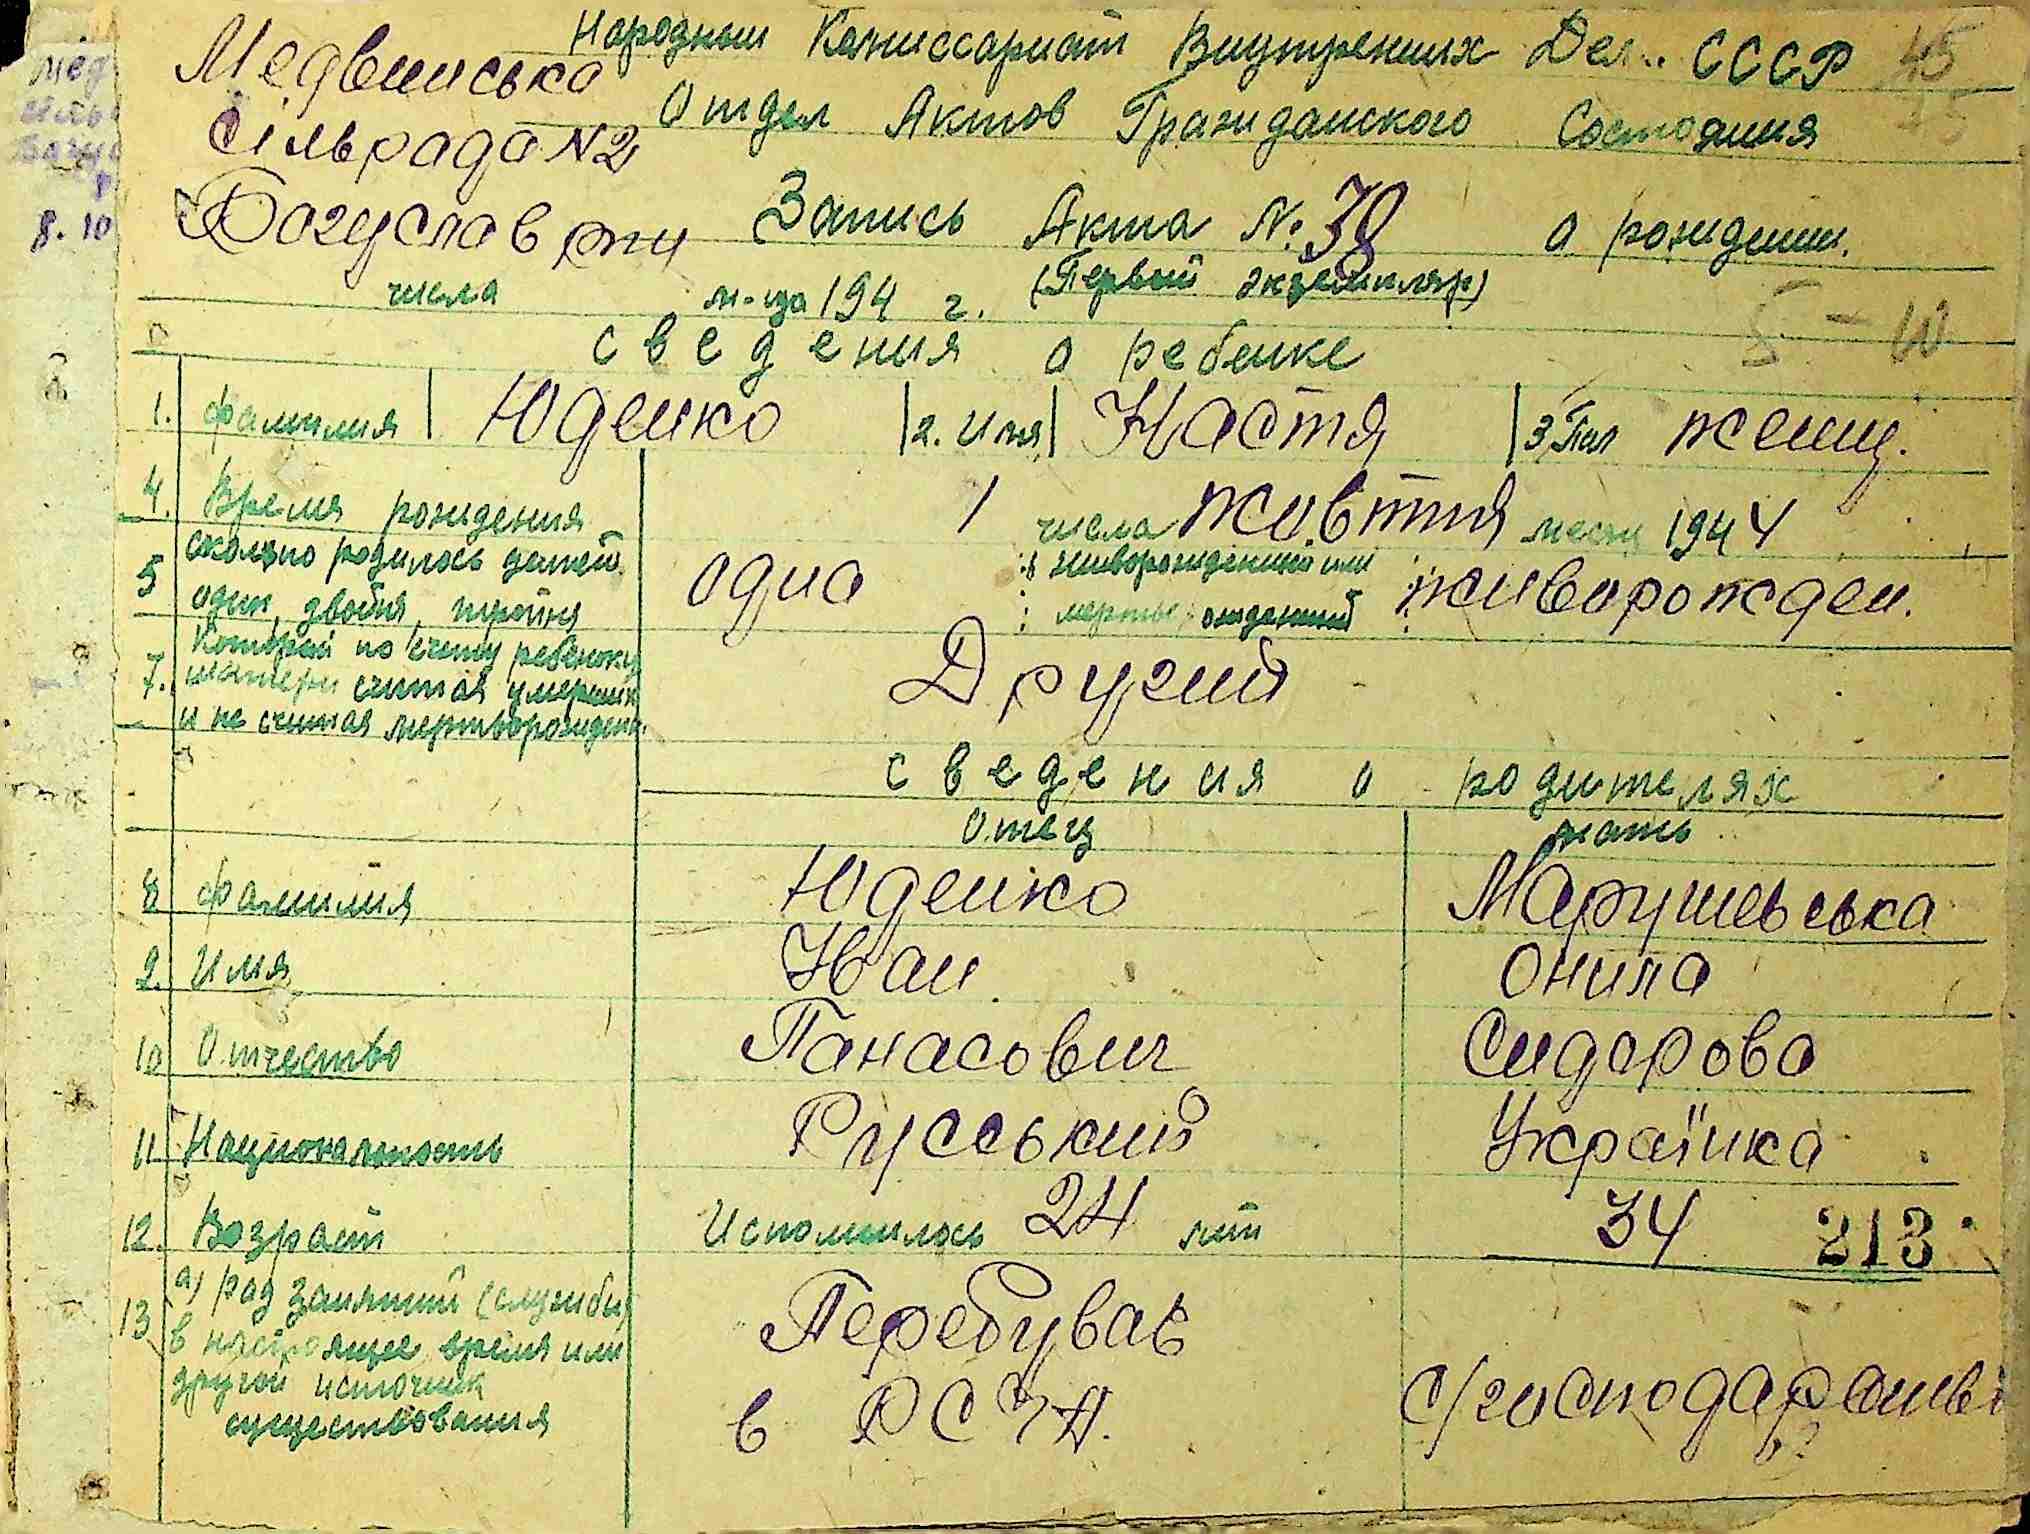 Народный Комиссариат Внутренних Дел СССР 45
Медвинська
Отдел Актов Гражданского Состояния
Сільрада N2
Богуслав р-ну Запись Акта №: 38 о рождении.
числа м-ца 194 г. (Первый экземпляр)
8. 10
5 – 10
сведения о ребенке
1. фамилия Юденко 2. Имя Настя 3 Пол женщ.
4. Время рождения 1 числа жовтня месяц 1944
5 сколько родилось детей один, двойня, тройня
одна живорожденный или мертворожденный живорожден.
7. Который по счету ребенок у
матери считая умерших
и не считая мертворожден.
Другий
сведения о родителях
Отец мать
8 фамилия Юденко Марушевська
9. Имя Иван Онила
10 Отчество Панасович Сидорова
11 Национальность Русський Українка
12. Возраст Исполнилось 24 лет 34 213
13 а) род занятий (службы)
в настоящее время или
другой источник
существования
Перебуває
в РСЧА.
с/господарстві